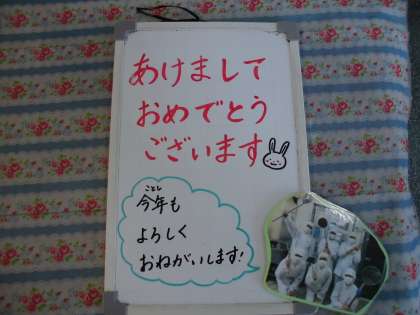 あけまして
おめでとう
ございます
ことし
今年も
よろしく
おねがいします!